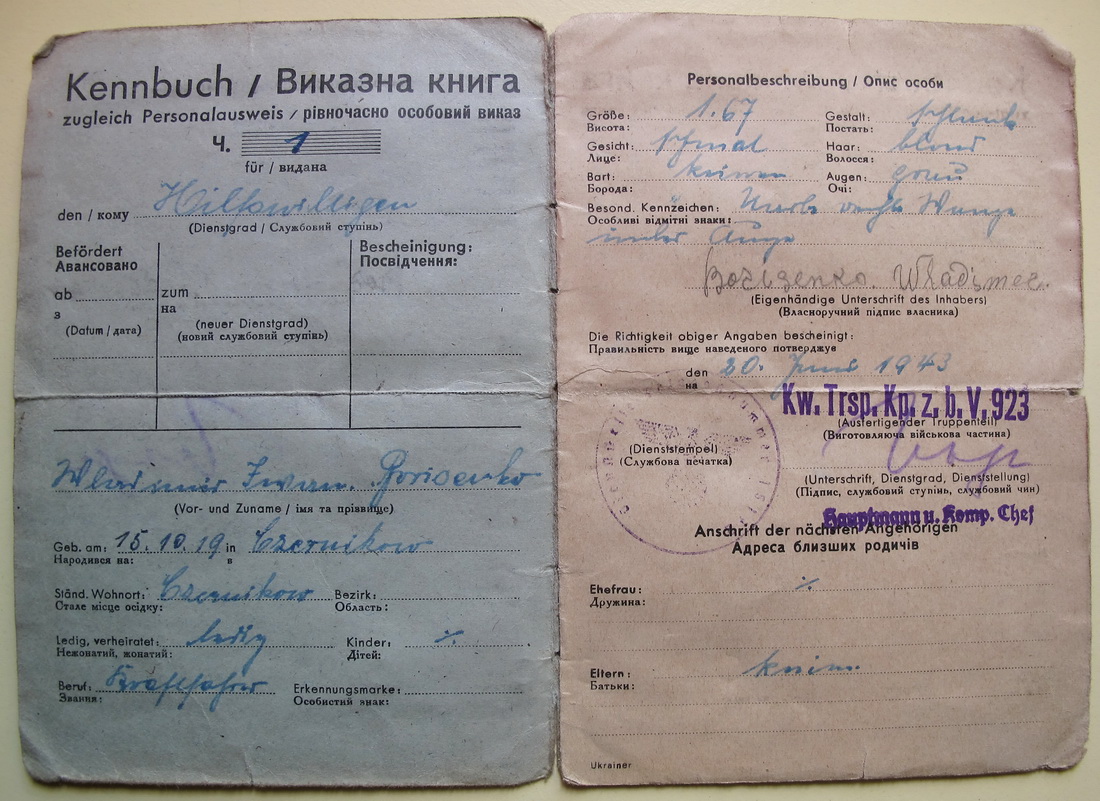 Kennbuch / Виказна книга
zugleich Personalausweis / рівночасно особовий виказ
Ч. 1
für / видана
den / кому Hilfswilligen
(Dienstgrad / Службовий ступінь)
Befördert
Авансовано
Bescheinigung:
Посвідчення:
ab
з
zum
на
(Datum / дата)
(neuer Dienstgrad)
(новий службовий ступінь)
Wladimir Iwan. Borisenko
(Vor- und Zuname / імя та прізвище)
Geb. am: 15.10.19 in Czernikow
Народився на: в
Ständ. Wohnort: Czernikow Bezirk:
Стале місце осідку: Область:
Ledig, verheiratet: ledig Kinder: %
Нежонатий, жонатий: Дітей:
Beruf: Kraftfahrer Erkennungsmarke:
Звання: Особистий знак:
Personalbeschreibung / Опис особи
Größe: 1.67 Gestalt: schlank
Висота: Постать:
Gesicht: schmal Haar: blond
Лице: Волосся:
Bart: keinen Augen: grau
Борода: Очі:
Besond. Kennzeichen: Narbe rechte Wange
Особливі відмітні знаки:
unter Auge
Wladimer
(Eigenhändige Unterschrift des Inhabers)
(Власноручний підпис власника)
Die Richtigkeit obiger Angaben bescheinigt:
Правильність вище наведеного потверджує
den 20. Juni 1943
на
Kw. Trsp. Kp. z. b. V. 923
(Ausfertigender Truppenteil)
(Виготовляюча військова частина)
(Dienststempel)
(Службова печатка)
(Unterschrift, Dienstgrad, Dienststellung)
(Підпис, службовий ступінь, службовий чин)
Hauptmann u. Komp. Chef
Anschrift der nächsten Angehörigen
Адреса близших родичів
Ehefrau: %
Дружина:
Eltern: keine
Батьки:
Ukrainer